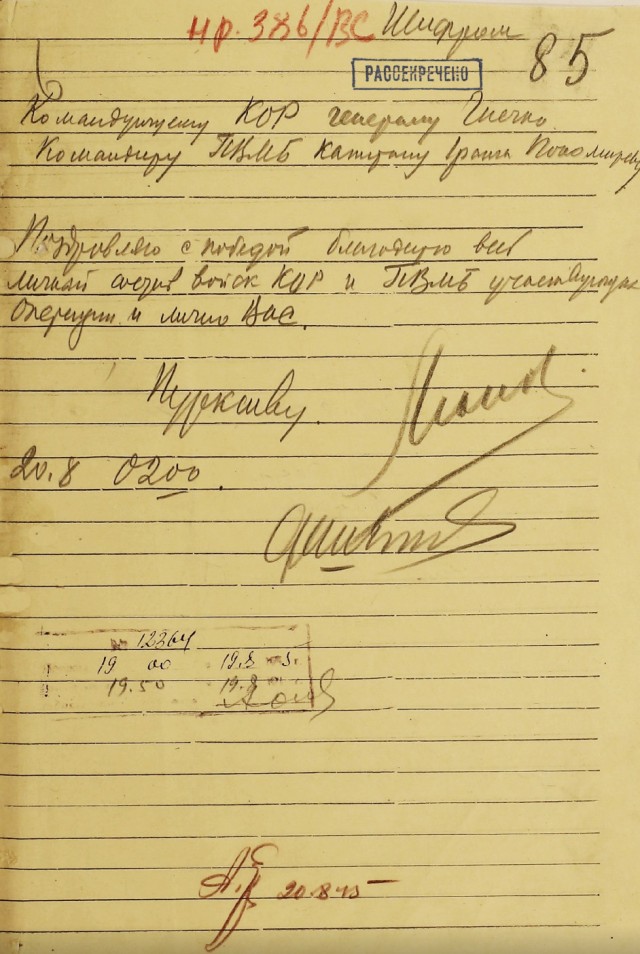 нр. 386/ВС Шифром
РАССЕКРЕЧЕНО 85
Командующему КОР генералу Гнечко
Командиру ПВМБ капитану I ранга Пономареву
Поздравляю с победой благодарю весь
личный состав войск КОР и ПВМБ участвующих
операции и лично Вас.
Пуркаеву.
20.8 0200.
12264
19 00 19.8
19.50 19.8
20.8.45